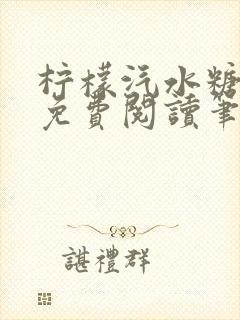 柠檬汽水糖
免費閱讀筆
諶禮群